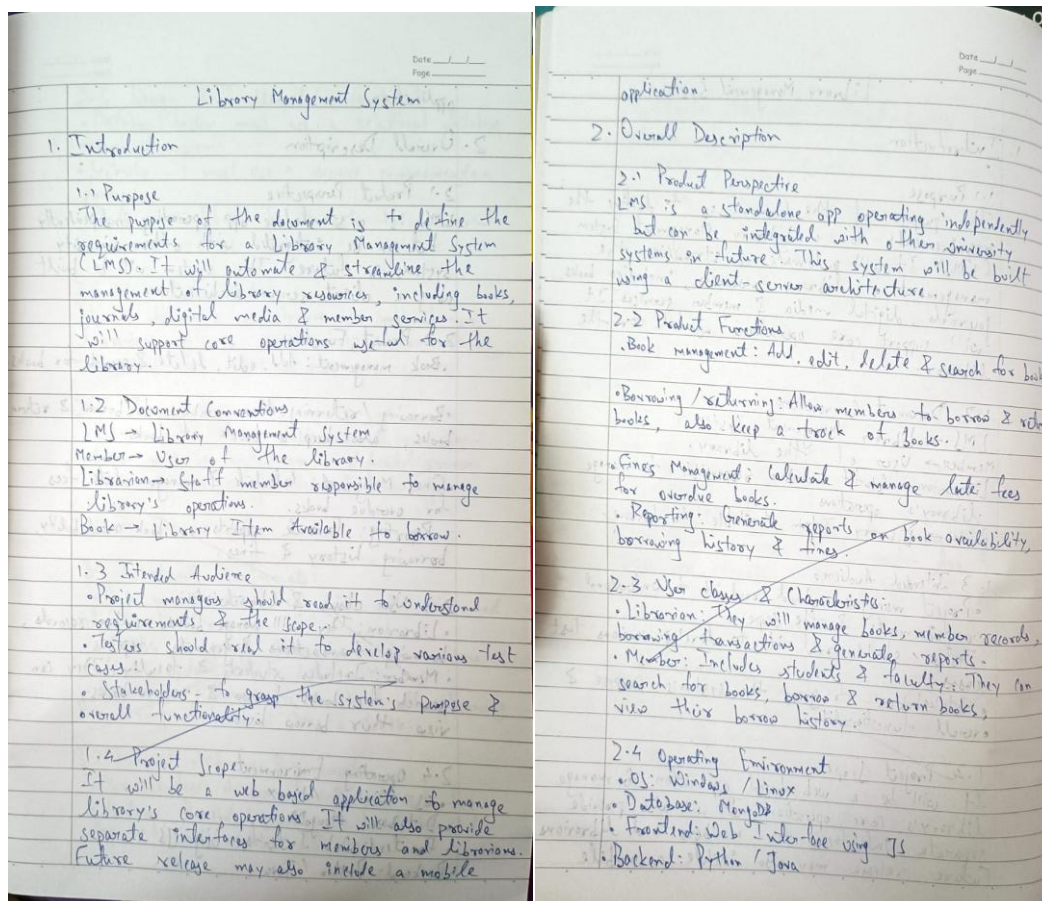 Date __/__/__
Page
Library Management System
1. Introduction
1.1 Purpose
The purpose of the document is to define the
requirements for a Library Management System
(LMS). It will automate & streamline the
management of library resources, including books,
journals, digital media & member services. It
will support core operations useful for the
library.
1.2 Document Conventions
LMS → Library Management System
Member → User of the library.
Librarian → Staff member responsible to manage
library's operations.
Book → Library Item Available to borrow.
1.3 Intended Audience
• Project managers should read it to understand
requirements & the scope.
• Testers should read it to develop various test
cases
• Stakeholders - to grasp the system's purpose &
overall functionality.
1.4 Project Scope
It will be a web based application to manage
library's core operations. It will also provide
separate interfaces for members and librarians.
Future release may also include a mobile
Date __/__/__
Page
application.
2. Overall Description
2.1 Product Perspective
LMS is a standalone app operating independently
but can be integrated with other university
systems in future. This system will be built
using a client-server architecture.
2.2 Product Functions
• Book management: Add, edit, delete & search for book
• Borrowing / returning: Allow members to borrow & retu
books, also keep a track of books.
• Fines Management: Calculate & manage late fees
for overdue books.
• Reporting: Generate reports on book availability,
borrowing history & fines.
2.3 User classes & Characteristics
• Librarian: They will manage books, member records,
borrowing transactions & generate reports.
• Member: Includes students & faculty. They can
search for books, borrow & return books,
view their borrow history.
2.4 Operating Environment
• OS: Windows / Linux
• Database: MongoDB
• Frontend: Web Interface using JS
• Backend: Python / Java